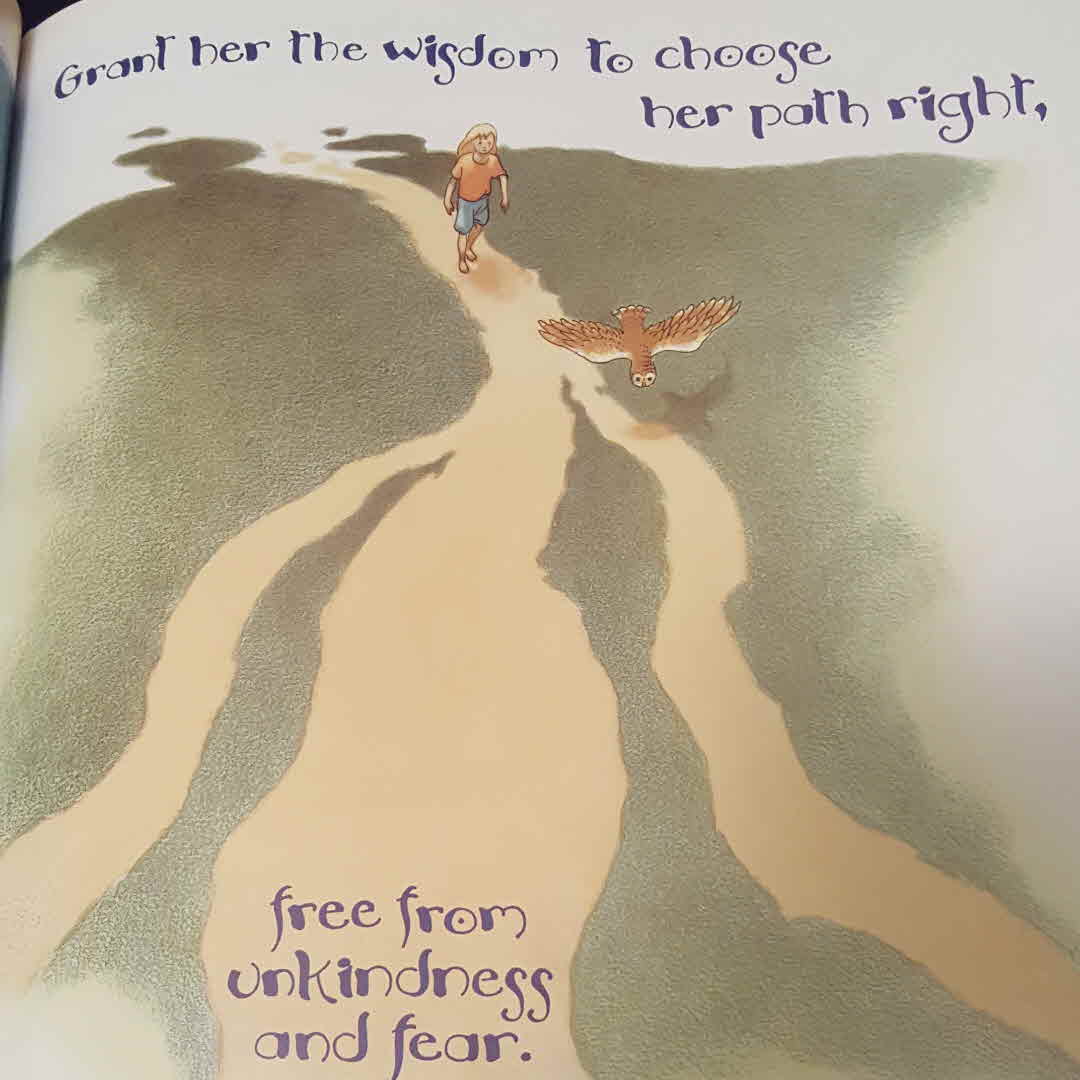 Grant her the wisdom to choose
her path right,
free from
unkindness
and fear.